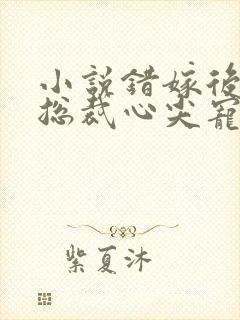 小說錯嫁後
總裁心尖寵
紫夏沐